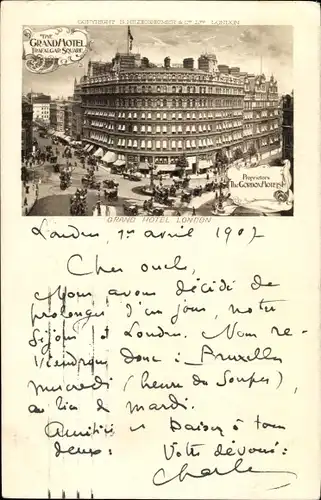 COPYRIGHT. D. HEZZEGREMEST & CO LTD LONDON
THE
GRAND HOTEL
TRAFALGAR SQUARE
Proprietors
The GORDON HOTELS
GRAND HOTEL LONDON
Londres, 1er avril 1907
Cher oncle,
Nous avons décidé de
prolonger d'un jour, notre
séjour à Londres. Nous re-
viendrons donc à Bruxelles
mercredi (heure du souper),
au lieu de mardi.
Amitiés et baisers à tous
deux.
Votre dévoué:
Charles